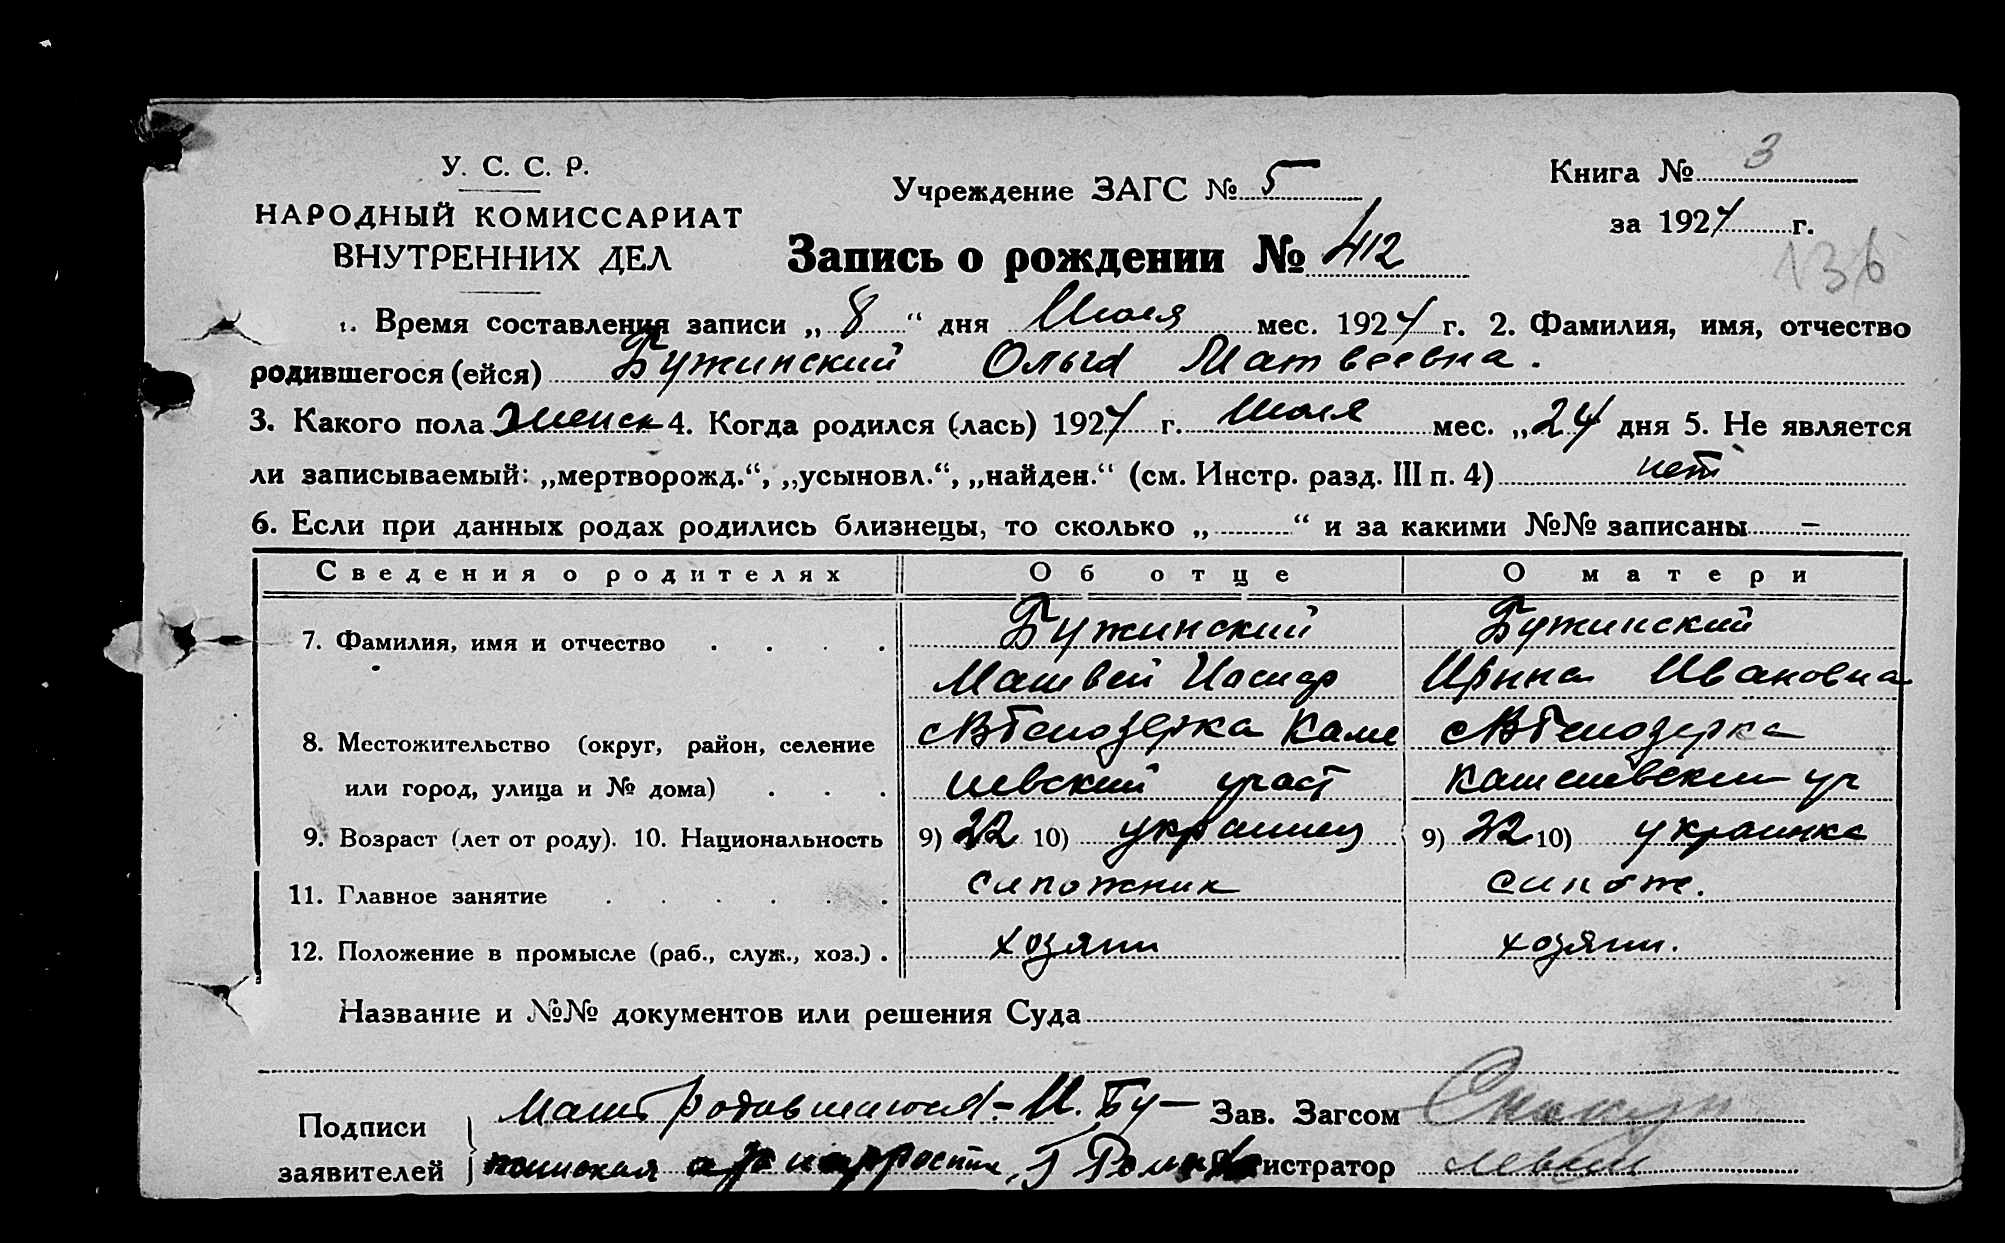 У. С. С. Р.
НАРОДНЫЙ КОМИССАРИАТ
ВНУТРЕННИХ ДЕЛ
Учреждение ЗАГС № 5
Книга № 3
за 1924 г.
Запись о рождении № 412
136
1. Время составления записи „ 8 “ дня Июля мес. 1924 г. 2. Фамилия, имя, отчество
родившегося (ейся) Бужинский Ольга Матвеевна.
3. Какого пола Женск 4. Когда родился (лась) 1924 г. Июля мес. „24 дня 5. Не является
ли записываемый: „мертворожд.“, „усыновл.“, „найден.“ (см. Инстр. разд. III п. 4) нет
6. Если при данных родах родились близнецы, то сколько „ “ и за какими №№ записаны –
Сведения о родителях Об отце О матери
7. Фамилия, имя и отчество Бужинский Бужинский
Матвей Иосиф Ирина Ивановна
8. Местожительство (округ, район, селение Белозерка Каме Белозерка
или город, улица и № дома) невский
9. Возраст (лет от роду). 10. Национальность 9) 22 10) украинец 9) 22 10) украинка
11. Главное занятие сапожник сапож.
12. Положение в промысле (раб., служ., хоз.) хозяин хозяин.
Название и №№ документов или решения Суда
Подписи
заявителей
И. Бу–
Зав. Загсом
Регистратор